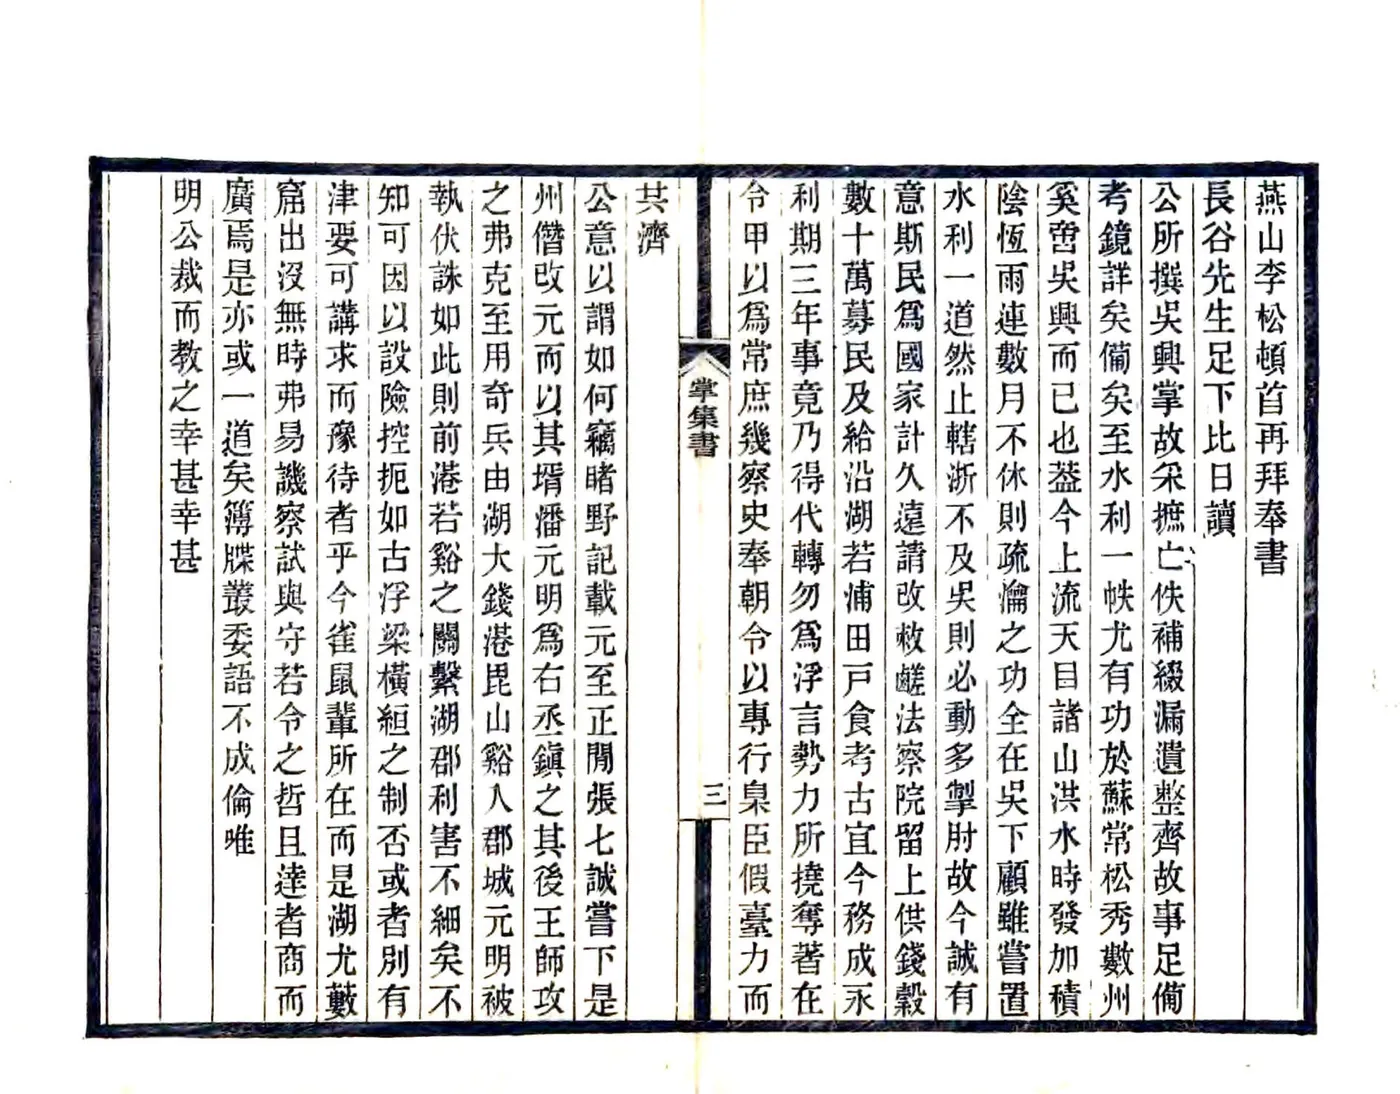 燕山李松頓首再拜奉書
長谷先生足下比日讀
公所撰吳興掌故采摭亡佚補綴漏遺整齊故事足備
考鏡詳矣備矣至水利一帙尤有功於蘇常松秀數州
奚啻吳興而已也葢今上流天目諸山洪水時發加積
陰恆雨連數月不休則疏瀹之功全在吳下顧雖嘗置
水利一道然止轄浙不及吳則必動多掣肘故今誠有
意斯民爲國家計久遠請改敕鹺法察院留上供錢穀
數十萬募民及給沿湖若浦田戸食考古宜今務成永
利期三年事竟乃得代轉勿爲浮言勢力所撓奪著在
令甲以爲常庶幾察史奉朝令以專行臬臣假臺力而
掌集書
三
其濟
公意以謂如何竊睹野記載元至正閒張七誠嘗下是
州僭改元而以其壻潘元明爲右丞鎭之其後王師攻
之弗克至用奇兵由湖大錢港毘山谿入郡城元明被
執伏誅如此則前港若谿之關繫湖郡利害不細矣不
知可因以設險控扼如古浮梁橫絙之制否或者別有
津要可講求而豫待者乎今雀鼠輩所在而是湖尤藪
窟出沒無時弗易譏察試與守若令之哲且達者商而
廣焉是亦或一道矣簿牒叢委語不成倫唯
明公裁而教之幸甚幸甚